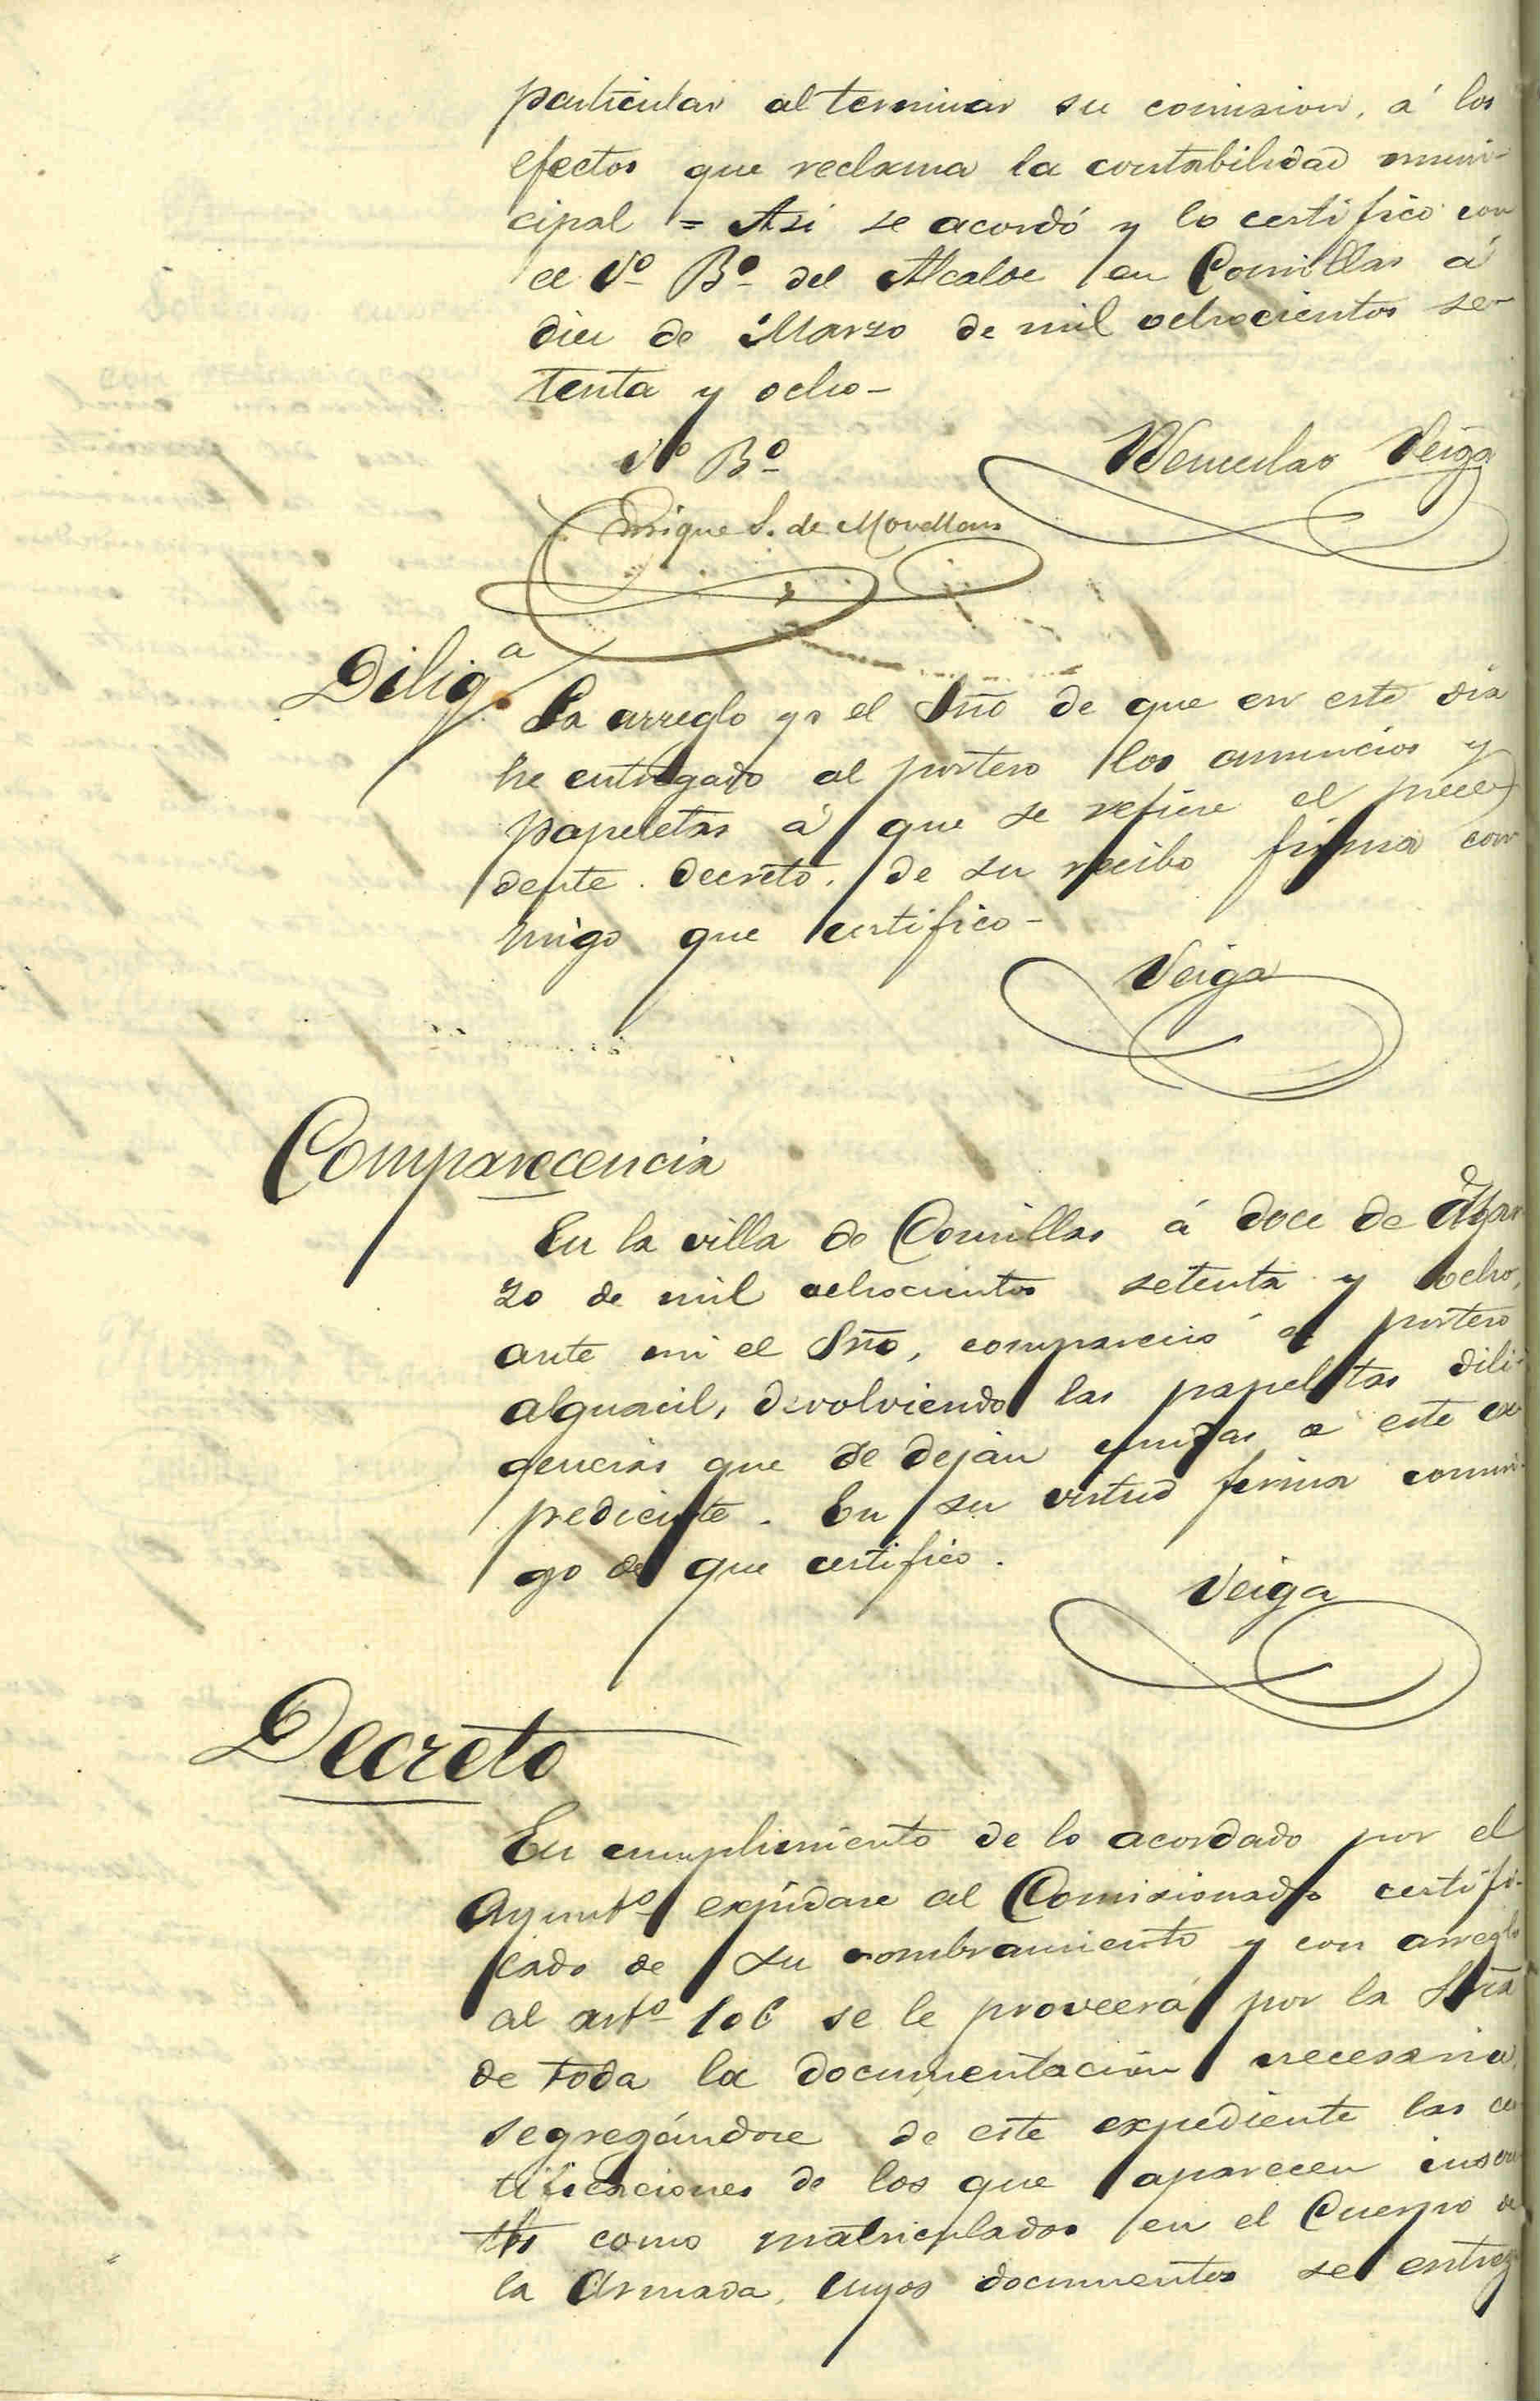 particular al terminar su comision, á los
efectos que reclama la contabilidad muni-
cipal = Asi se acordó y lo certifico con
el Vº Bº del Alcalde en Comillas á
diez de Marzo de mil ochocientos se-
tenta y ocho-
Vº Bº
Wenceslao Veiga
Enrique S. de Movellan
Diligª
La arreglo yo el Srio de que en este dia
he entregado al portero los anuncios y
papeletas á que se refiere el prece-
dente decreto. de su recibo firma con
migo que certifico-
Veiga
Comparecencia
En la villa de Comillas á doce de Mar
zo de mil ochocientos setenta y ocho,
ante mi el Srio, compareció el portero
alguacil, devolviendo las papeletas dili-
gencias que se dejan unidas a este ex
pediente. En su virtud firma conmi-
go de que certifico.
Veiga
Decreto
En cumplimiento de lo acordado por el
Ayuntº expidase al Comisionado certifi-
cado de su nombramiento y con arreglo
al artº 106 se le proveerá por la Sria
de toda la documentación necesaria,
segregándose de este expediente las cer
tificaciones de los que aparecen inscri
tos como matriculados en el Cuerpo de
la Armada, cuyos documentos se entreg